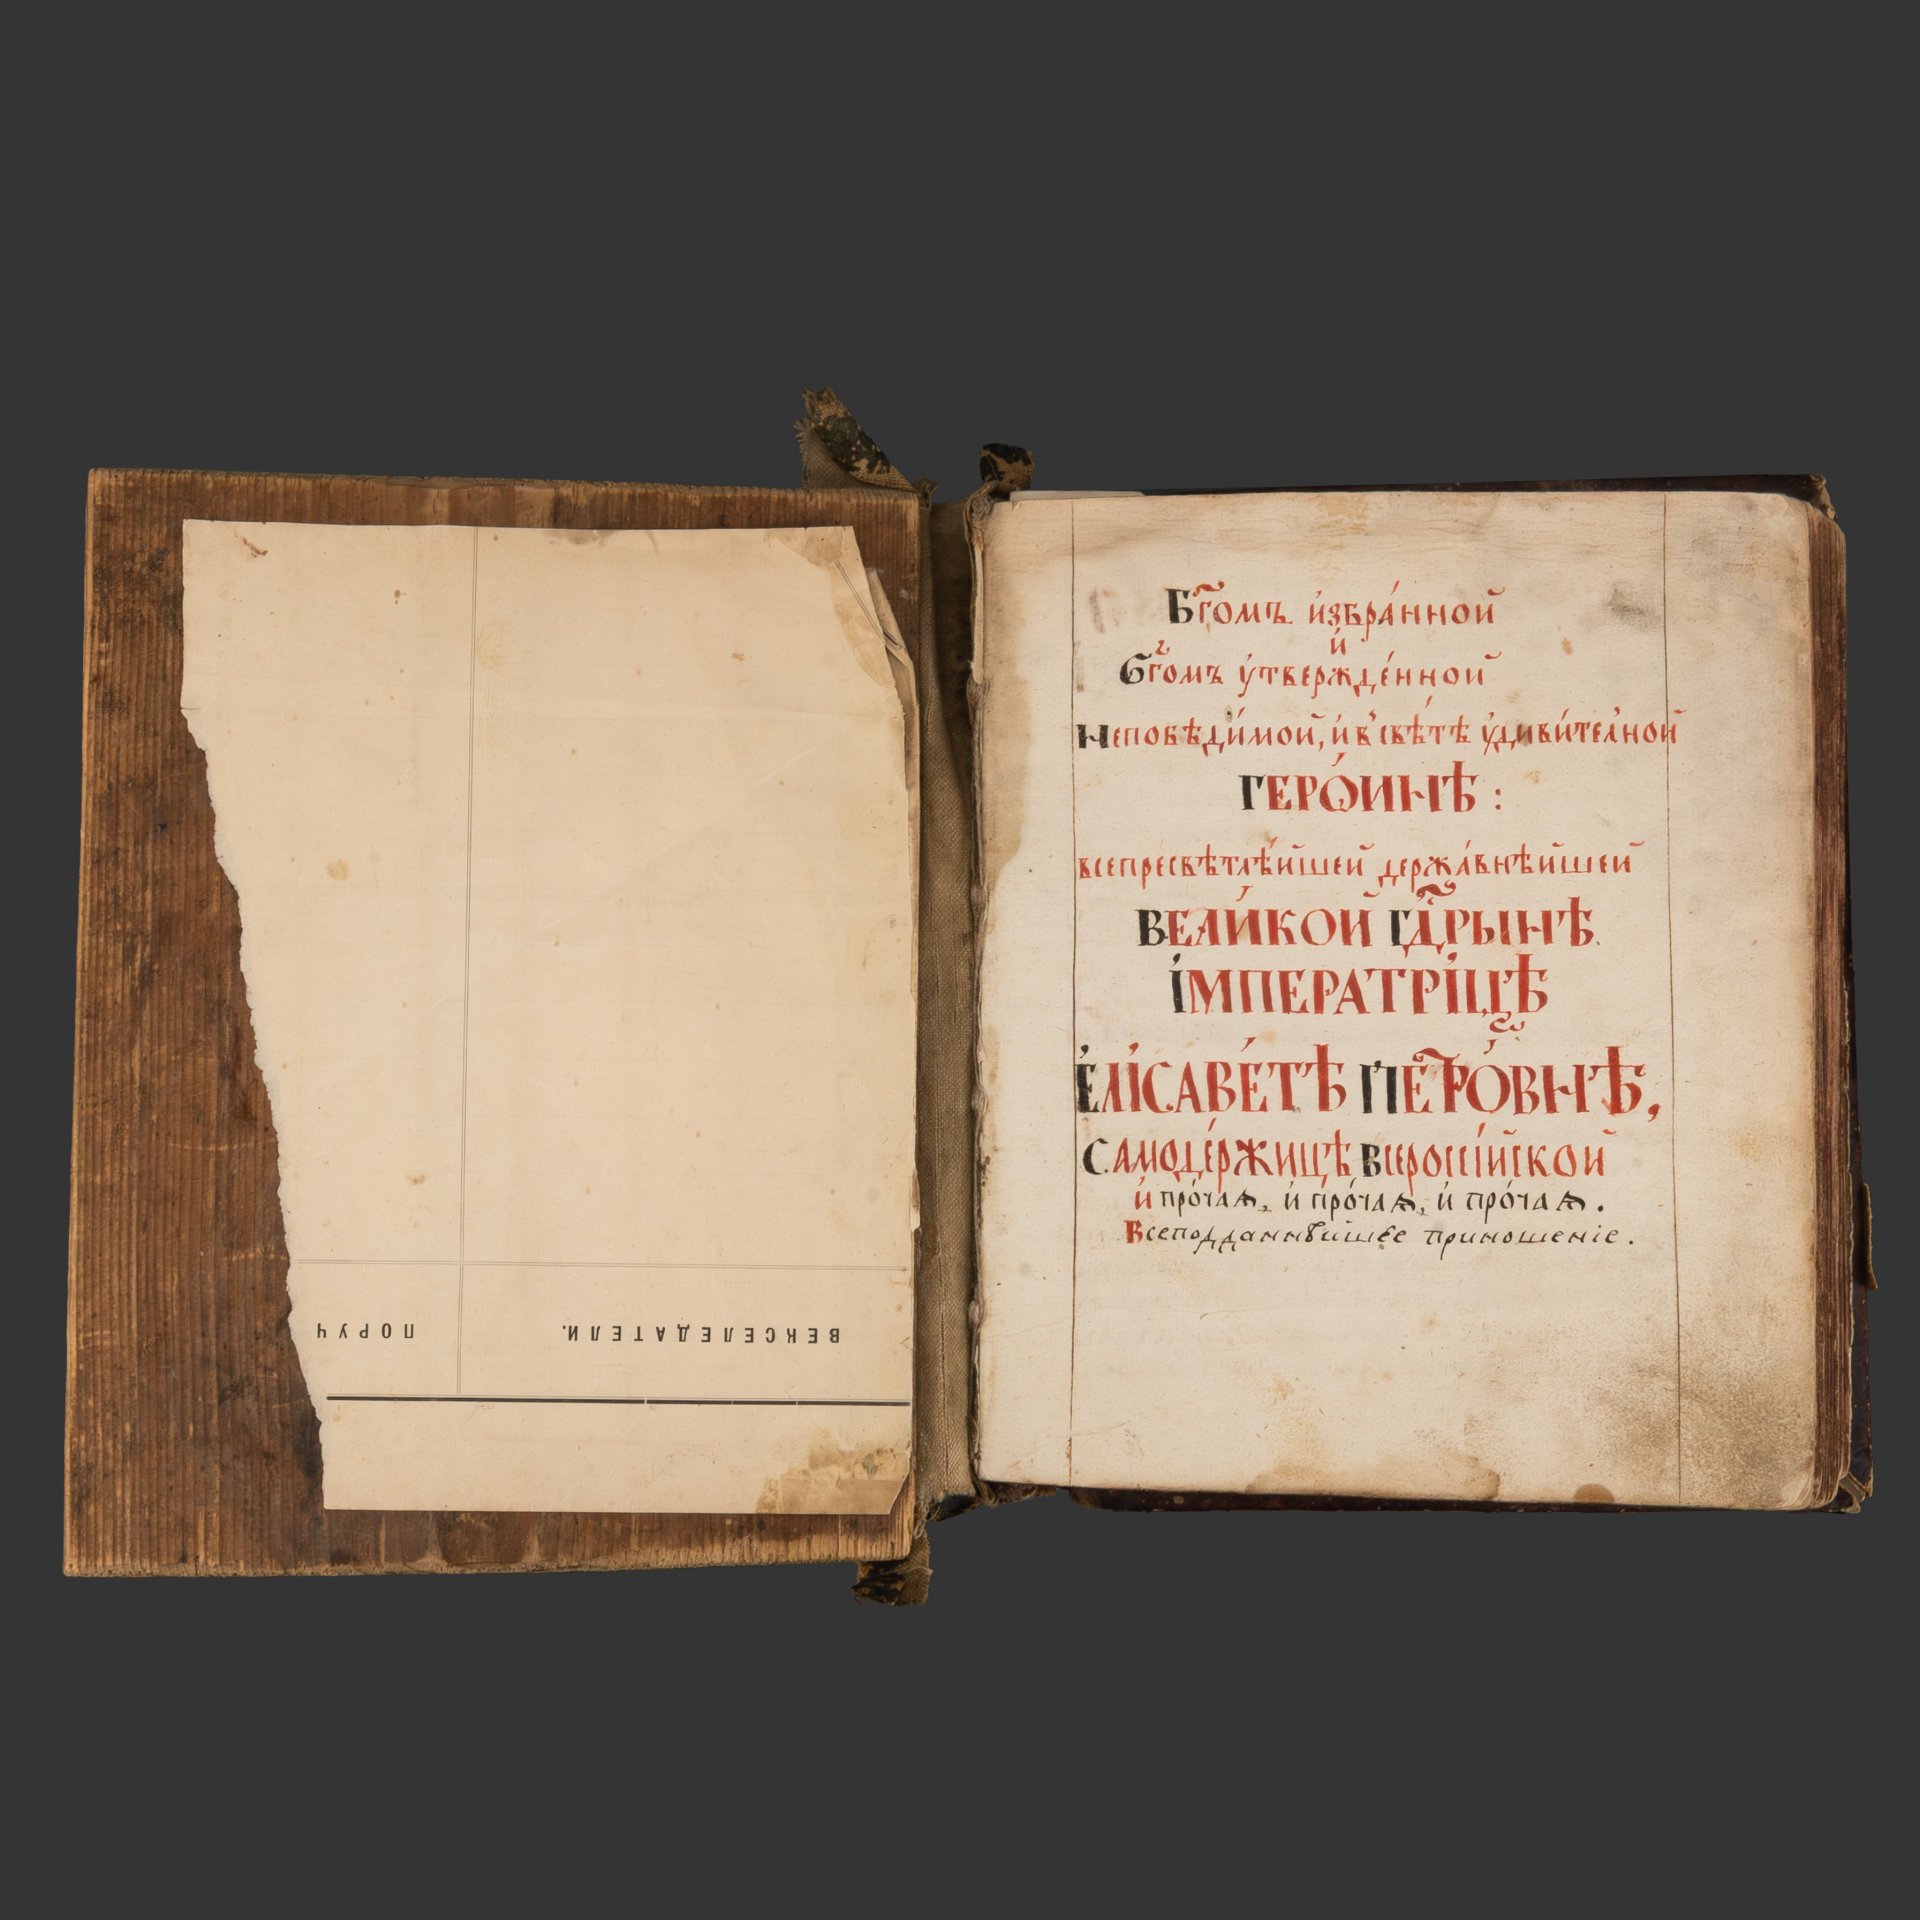 ВЕКСЕЛЕДАТЕЛИ.
ПОРУЧ
Бг҃омъ и҆збра́нной
и҆
Бг҃омъ ᲂу҆твержде́нной
непобѣди́мой, и҆ в̾ свѣ́тѣ ᲂу҆диви́телной
ГЕРѠ́ИНѢ :
всепресвѣтлѣ́йшей держа́внѣйшей
ВЕЛИ́КОЙ ГД҃РЫНѢ
І҆МПЕРАТРІ́ЦѢ
Е҆ЛІСАВЕ́ТѢ ПЕТРО́ВНѢ,
Самоде́ржицѣ Всеросі́йской
и҆ про́чаѧ, и҆ про́чаѧ, и҆ про́чаѧ.
Всеподданнѣйшее приношенїе.